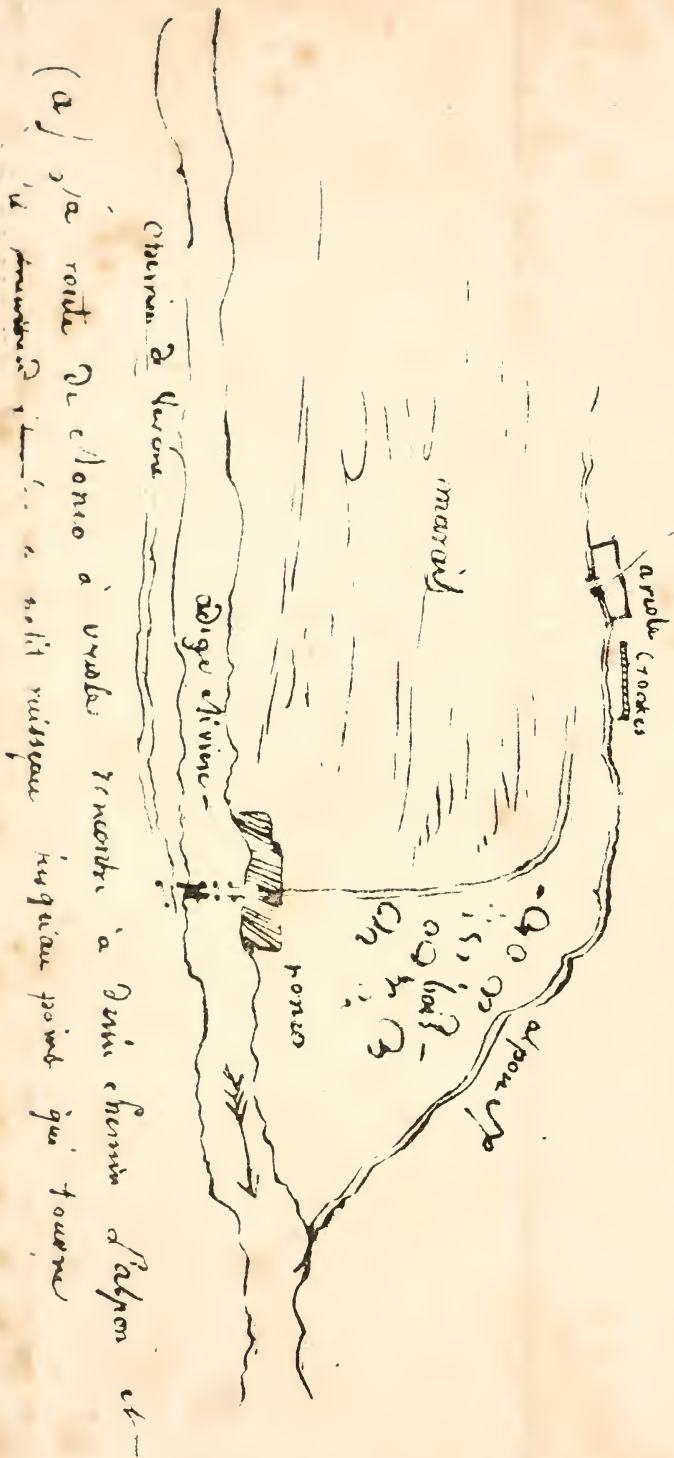 arcole Croates
marais
alpon
bois
ronco
adige Rivière
chemin de Verone
(a) la route de Ronco à arcole rencontre à demi chemin l'alpon et
petit ruisseau jusqu'au point qui tourne